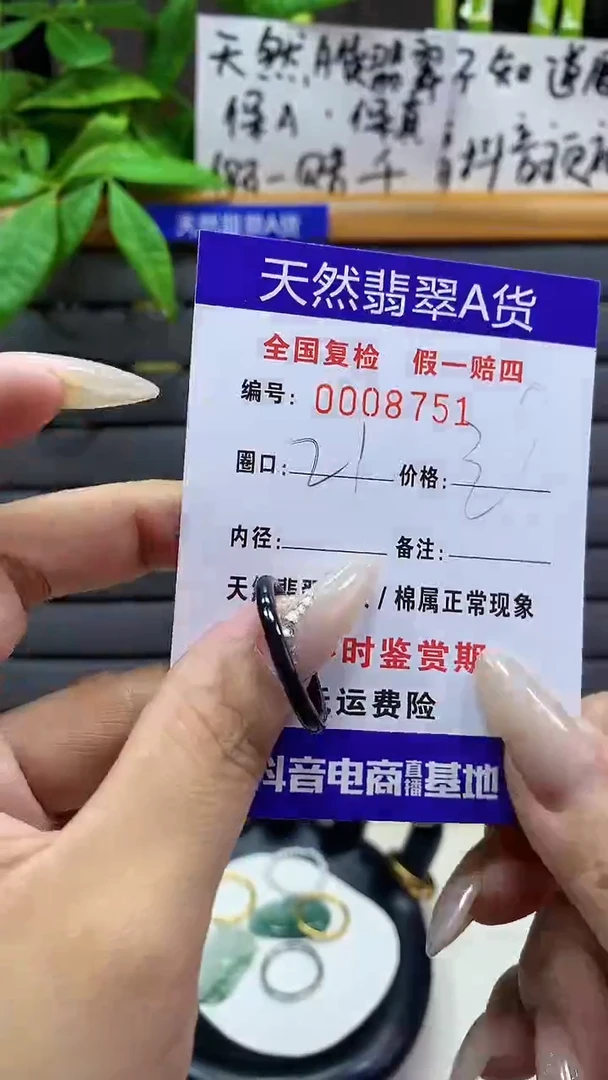 天然A货翡翠 不知道
保A·保真
假一赔千 抖音
天然翡翠A货
天然翡翠A货
全国复检 假一赔四
编号: 0008751
圈口: 21 价格:
内径: 备注:
天然翡翠 / 棉属正常现象
时鉴赏期
运费险
抖音电商直播基地